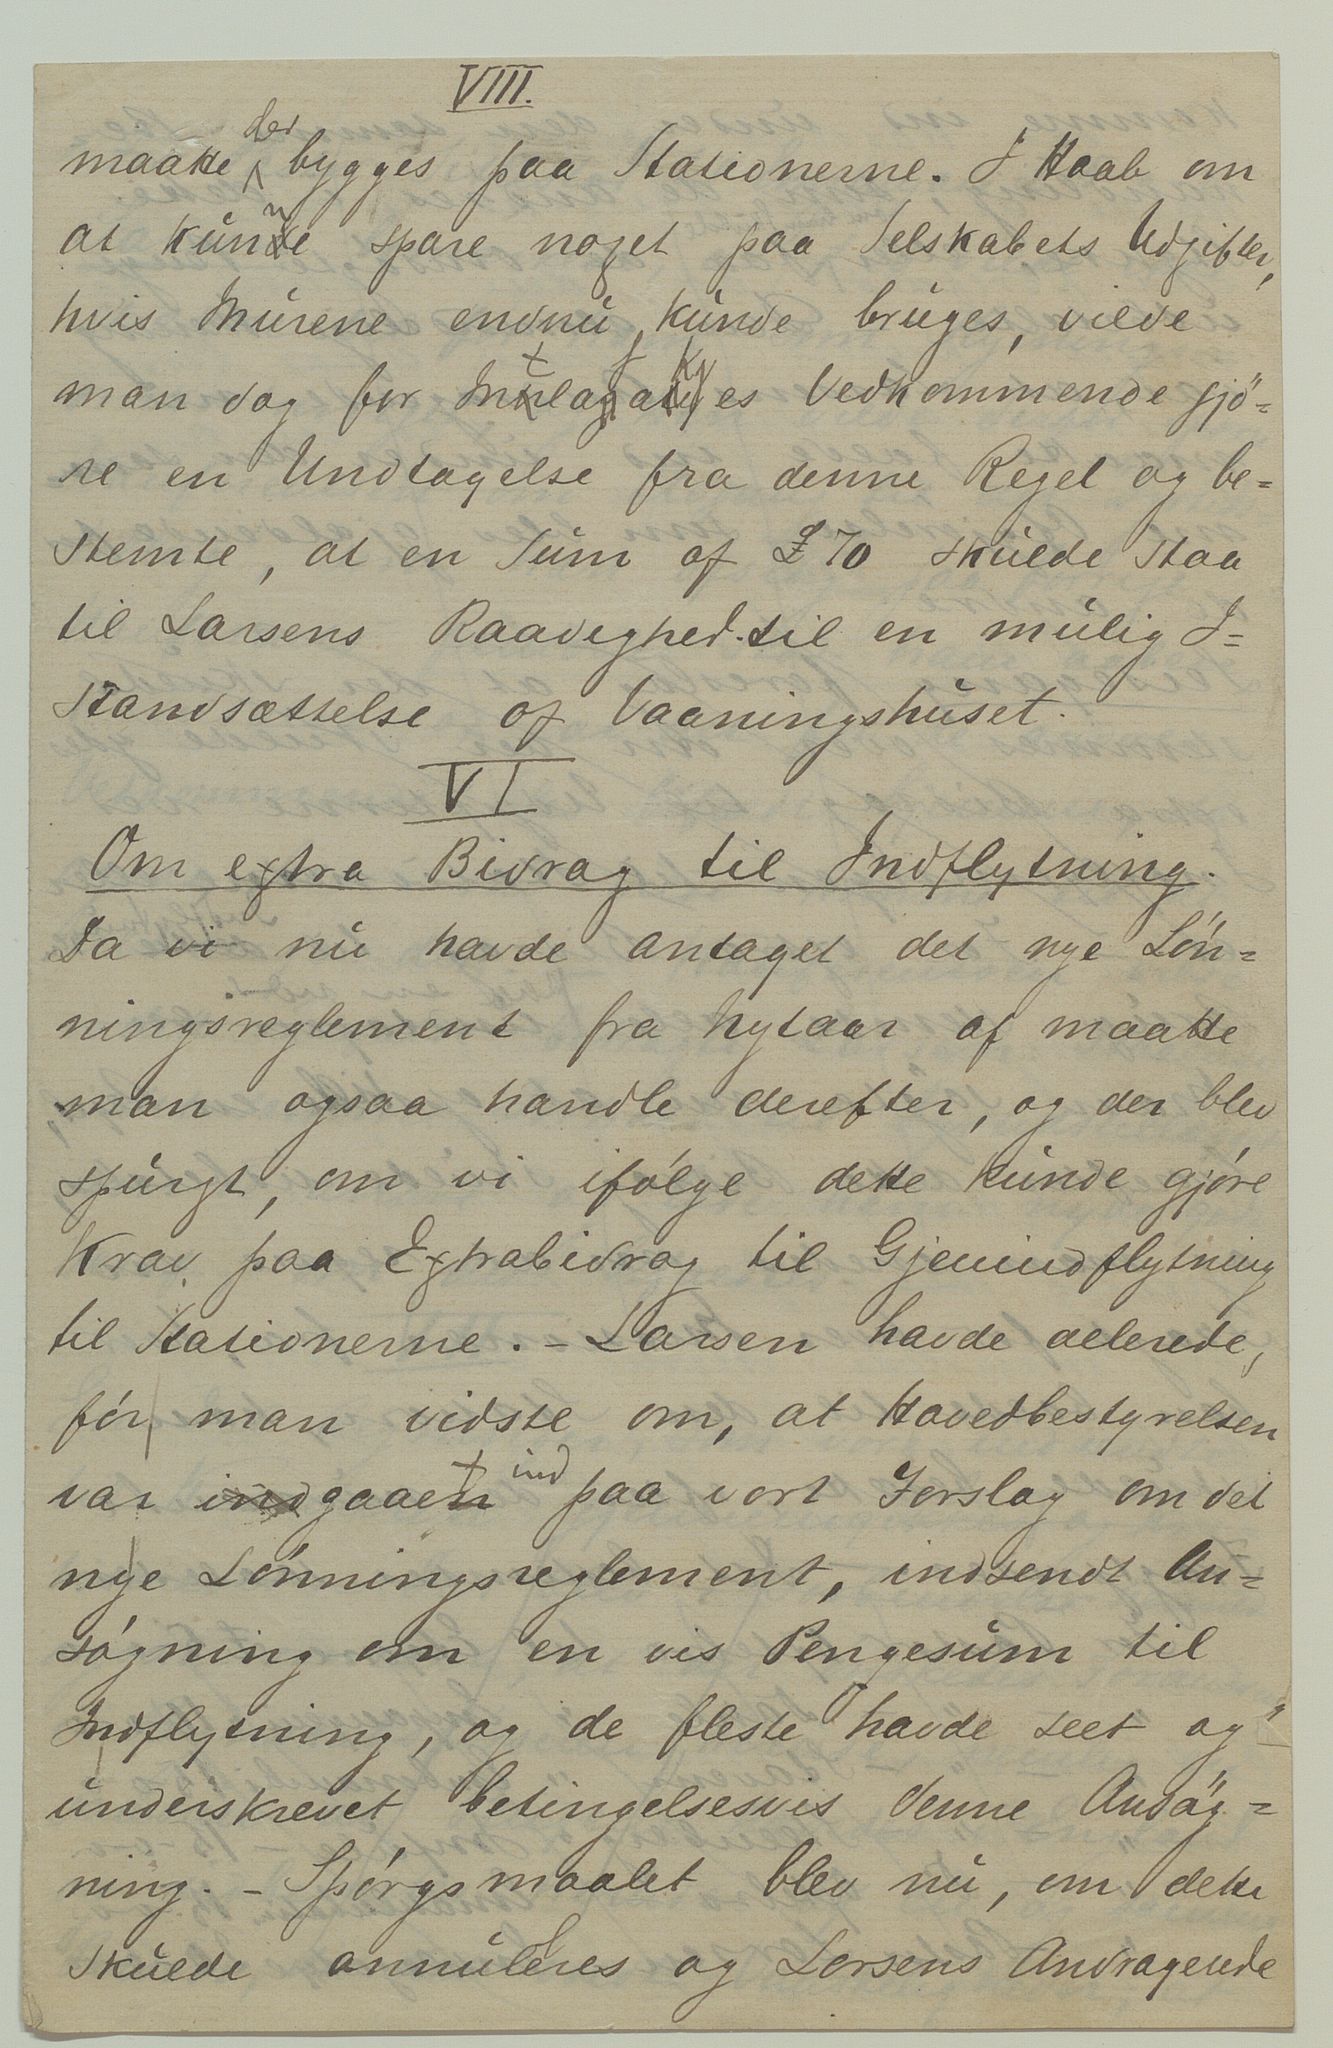 VIII.
maatte der bygges paa Stationerne. I Haab om
at kunne spare noget paa Selskabets Udgifter,
hvis Murene endnu kunde bruges, vilde
man dog for es Vedkommende gjö=
re en Undtagelse fra denne Regel og be=
stemte, at en Sum af £70 skulde staa
til Larsens Raadighed til en mulig I=
standsættelse af Vaaningshuset.
VI
Om extra Bidrag til Indflytning.
Da vi nu havde antaget det nye Løn=
ningsreglement fra Nytaar af maatte
man ogsaa handle derefter, og der blev
spurgt, om vi ifølge dette kunde gjøre
Krav paa Extrabidrag til Gjenindflytning
til Stationerne. - Larsen havde allerede,
før man vidste om, at Hovedbestyrelsen
var gaaet ind paa vort Forslag om det
nye Lønningsreglement, indsendt An=
søgning om en vis Pengesum til
Indflytning, og de fleste havde seet og
underskrevet betingelsesvis denne Ansøg=
ning. - Spørgsmaalet blev nu, om dette
skulde annuleres og Larsens Andragende